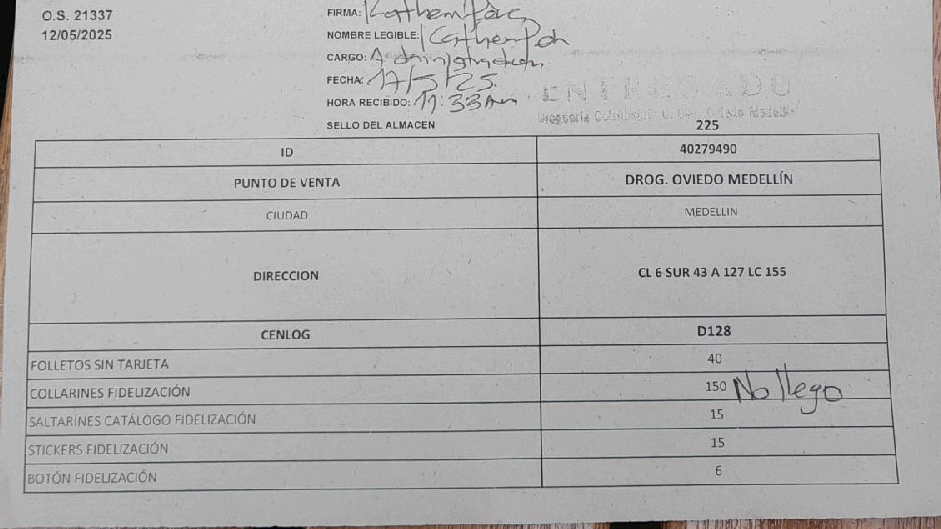 O.S. 21337
12/05/2025
FIRMA:
NOMBRE LEGIBLE:
CARGO: Administradora
FECHA: 17/5/25.
HORA RECIBIDO: 11:33am
ENTREGADO
SELLO DEL ALMACEN
225
ID 40279490
PUNTO DE VENTA DROG. OVIEDO MEDELLÍN
CIUDAD MEDELLIN
DIRECCION CL 6 SUR 43 A 127 LC 155
CENLOG D128
FOLLETOS SIN TARJETA 40
COLLARINES FIDELIZACIÓN 150 No llego
SALTARÍNES CATÁLOGO FIDELIZACIÓN 15
STICKERS FIDELIZACIÓN 15
BOTÓN FIDELIZACIÓN 6